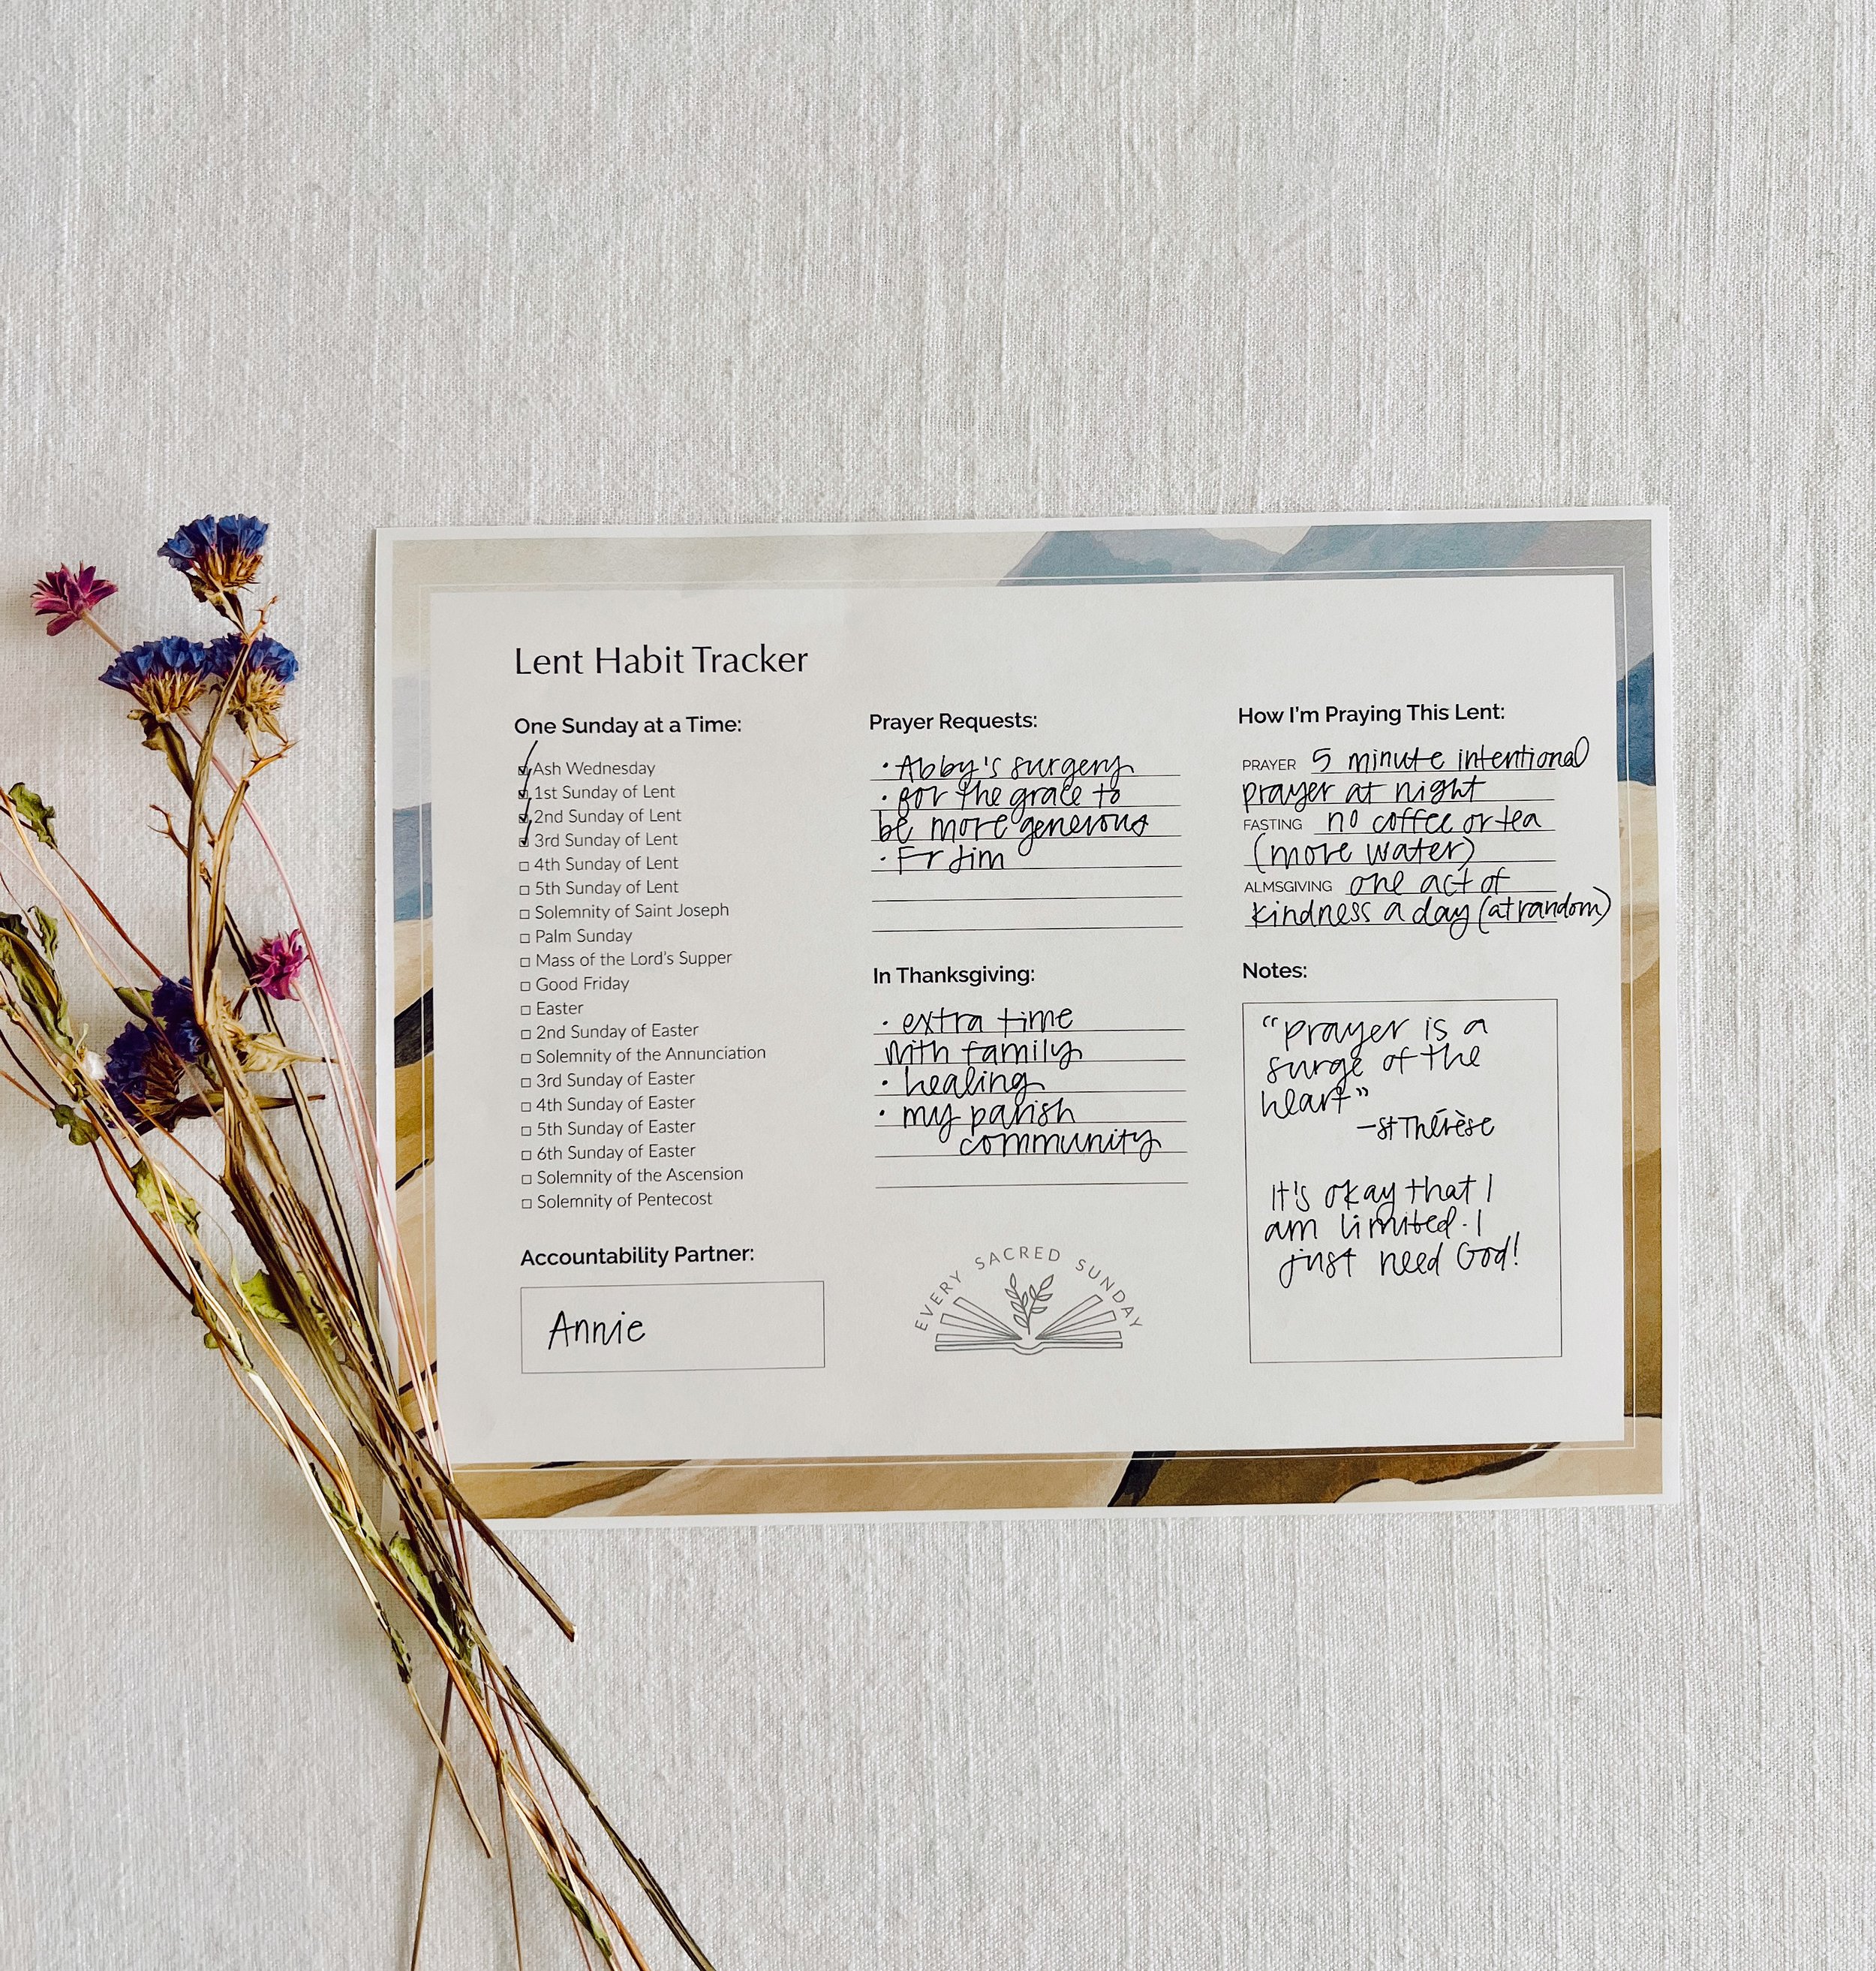 Lent Habit Tracker
One Sunday at a Time:
Ash Wednesday
1st Sunday of Lent
2nd Sunday of Lent
3rd Sunday of Lent
4th Sunday of Lent
5th Sunday of Lent
Solemnity of Saint Joseph
Palm Sunday
Mass of the Lord's Supper
Good Friday
Easter
2nd Sunday of Easter
Solemnity of the Annunciation
3rd Sunday of Easter
4th Sunday of Easter
5th Sunday of Easter
6th Sunday of Easter
Solemnity of the Ascension
Solemnity of Pentecost
Accountability Partner:
Annie
Prayer Requests:
· Abby's surgery
· for the grace to
be more generous
· Fr Jim
In Thanksgiving:
· extra time
with family
· healing
· my parish
community
EVERY SACRED SUNDAY
How I'm Praying This Lent:
PRAYER 5 minute intentional
prayer at night
FASTING no coffee or tea
(more water)
ALMSGIVING one act of
kindness a day (at random)
Notes:
"prayer is a
surge of the
heart"
-St Thérèse
It's okay that I
am limited. I
just need God!